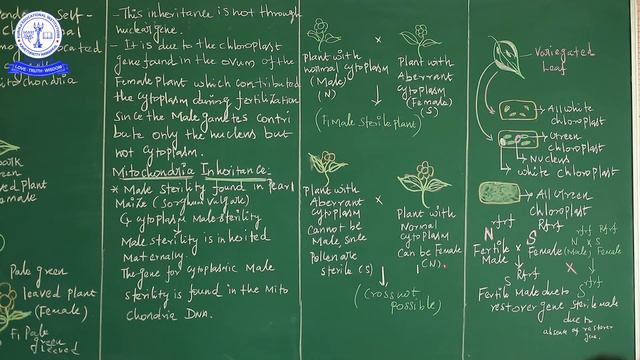 - This inheritance is not through
nuclear gene.
- It is due to the chloroplast
gene found in the ovum of the
Female plant which contributed
the cytoplasm during fertilization
since the Male gametes contri
bute only the nucleus but
not cytoplasm.
Mitochondria Inheritance:
* Male sterility found in pearl
Maize (Sorghum Vulgare)
↳ cytoplasm Male sterility
Male sterility is inherited
Maternally
The gene for cytoplasmic Male
sterility is found in the Mito
chondria DNA.
Pale green
leaved plant
(Female)
F1 Pale
green
leaved
Plant with
normal cytoplasm
(Male)
(N)
x
Plant with
Aberrant
cytoplasm
(Female)
(S)
(F1 Male sterile plant)
Plant with
Aberrant
cytoplasm
Cannot be
Male, since
Pollen are
sterile (S)
x
Plant with
Normal
cytoplasm
Can be Female
(N).
(Cross not
possible)
Variegated
Leaf
All white
chloroplast
Green
chloroplast
Nucleus
White chloroplast
All Green
chloroplast
N rfrf
S Rfrf
Fertile x Female
Male
N x S
(Male) Female
S Rfrf
x
S rfrf
Fertile Male due to
restorer gene
sterile male
due to
absence of restorer
gene.
LOVE · TRUTH · WISDOM